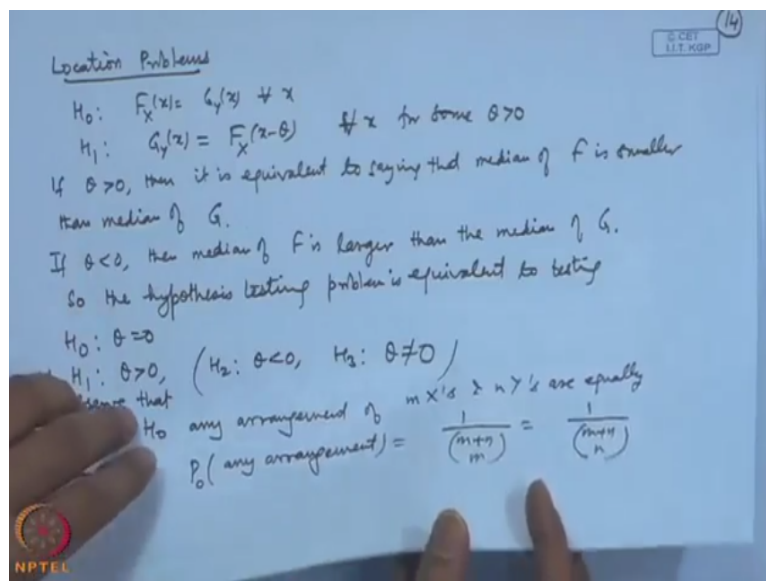 14
© CET
I.I.T. KGP
Location Problems
H₀: F_X(x) = G_Y(x) ∀ x
H₁: G_Y(x) = F_X(x-θ) ∀ x for some θ>0
If θ>0, then it is equivalent to saying that median of F is smaller
than median of G.
If θ<0, then median of F is larger than the median of G.
So the hypothesis testing problem is equivalent to testing
H₀: θ=0
H₁: θ>0, (H₂: θ<0, H₃: θ≠0)
that
H₀ any arrangement of m X's & n Y's are equally
P₀(any arrangement) = 1/(m+n m) = 1/(m+n n)
NPTEL